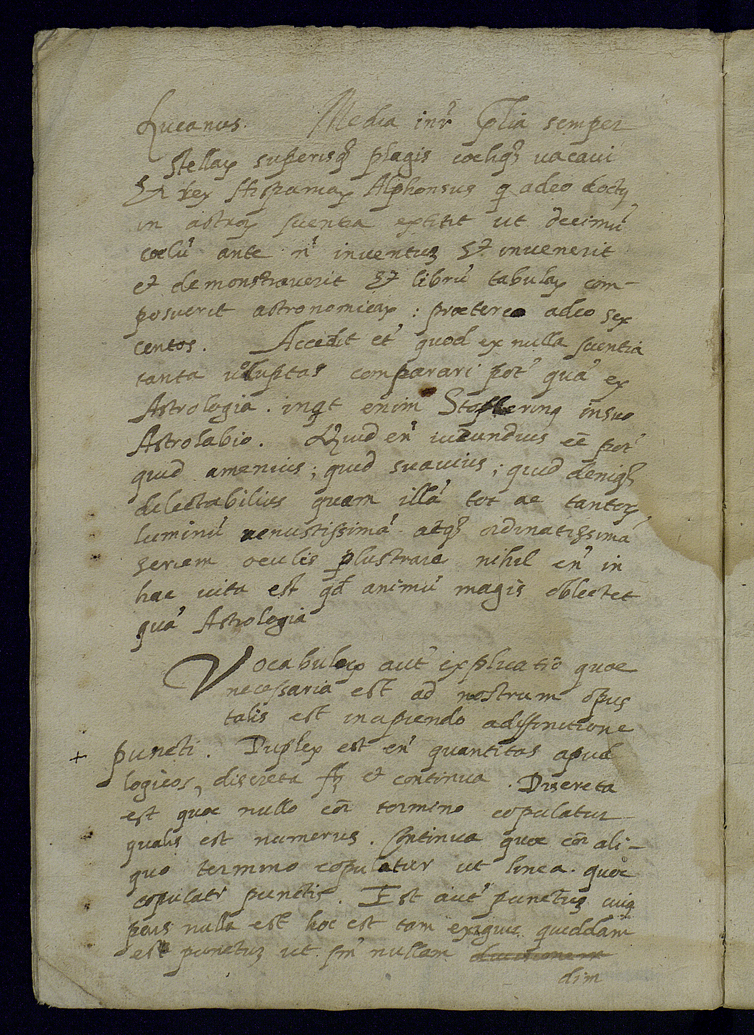 Lucanus. Media intʳ p̃lia semper
stellaꝝ superisqꝫ plagis coeliqꝫ vacavi
Et rex Hispaniaꝝ Alphonsus q adeo doctꝯ
in astroꝝ scientia extitit ut decimũ
coelũ ante nõ inventuꝫ Et invenerit
et demonstraverit Et librũ tabulaꝝ com-
posuerit astronomicaꝝ : praeterea adeo sex
centos. Accedit et quod ex nulla scientia
tanta voluptas comparari pot' quã ex
Astrologia . inqt enim Stoflerinꝯ in suo
Astrolabio. Quid en' iucundius eẽ pot'
quid amenius ; quid suavius ; quid deniqꝫ
delectabilius quam illã tot ac tantoꝝ
luminũ venustissimã atqꝫ ordinatissimã
seriem oculis ꝑlustrare nihil en' in
hac vita est qd animũ magis oblectet
quã Astrologia
Vocabuloꝝ aut' explicatio quae
necessaria est ad nostrum opus
talis est incipiendo a diffinitione
+ puncti. Duplex est en' quantitas apud
logicos, discreta et continua . Discreta
est quae nullo cõi termino copulatur
qualis est numerus. Continua quae cõi ali-
quo termino copulatur ut linea. quae
copulatʳ punctis. Est aut' punctuꝫ cuiꝯ
pars nulla est hoc est tam exiguũ quiddam
est punctuꝫ ut nullam
dim